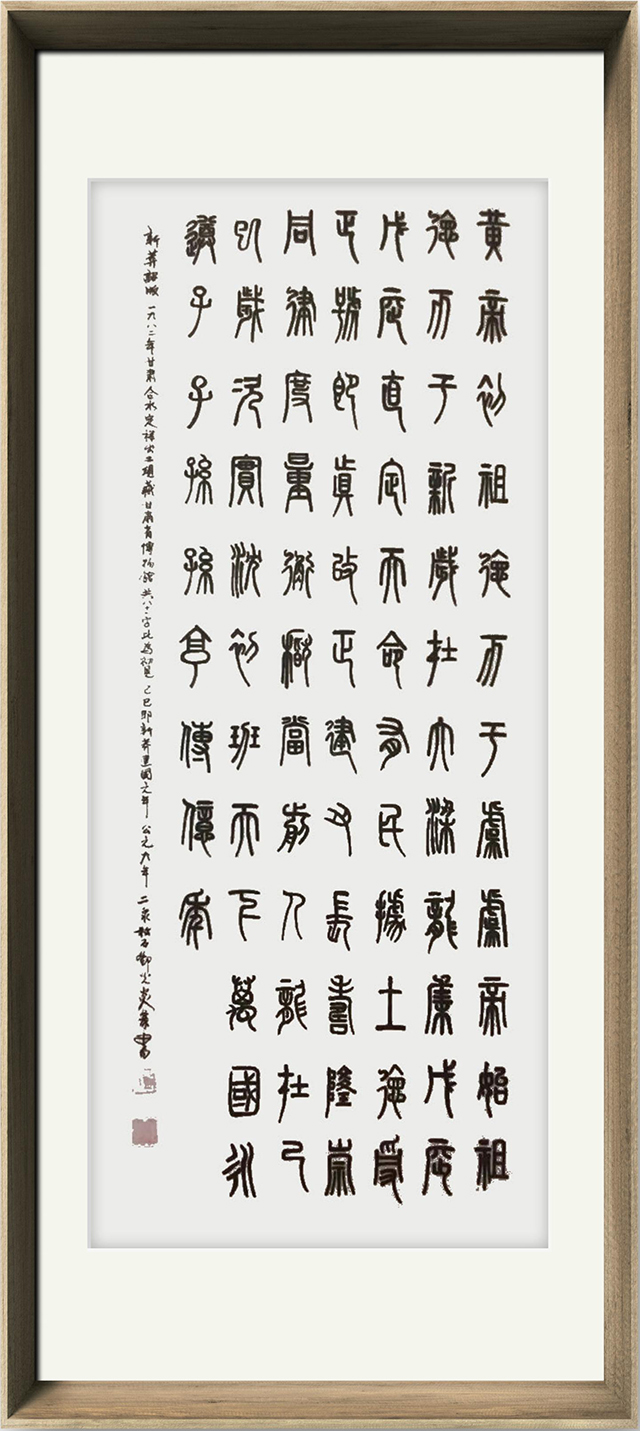 黃帝初祖德帀于虞虞帝始祖
德帀于新歲在大梁龍集戊辰
戊辰直定天命有民據土德受
正號即真改正建丑長壽隆崇
同律度量衡稽當前人龍在己
巳歲次實沈初班天下萬國永
遵子子孫孫亨傳億年
新莽詔版 一九八二年甘肅合水定祥出土現藏甘肅省博物館共八十一字此為 己巳即新莽建國元年 公元九年 二泉